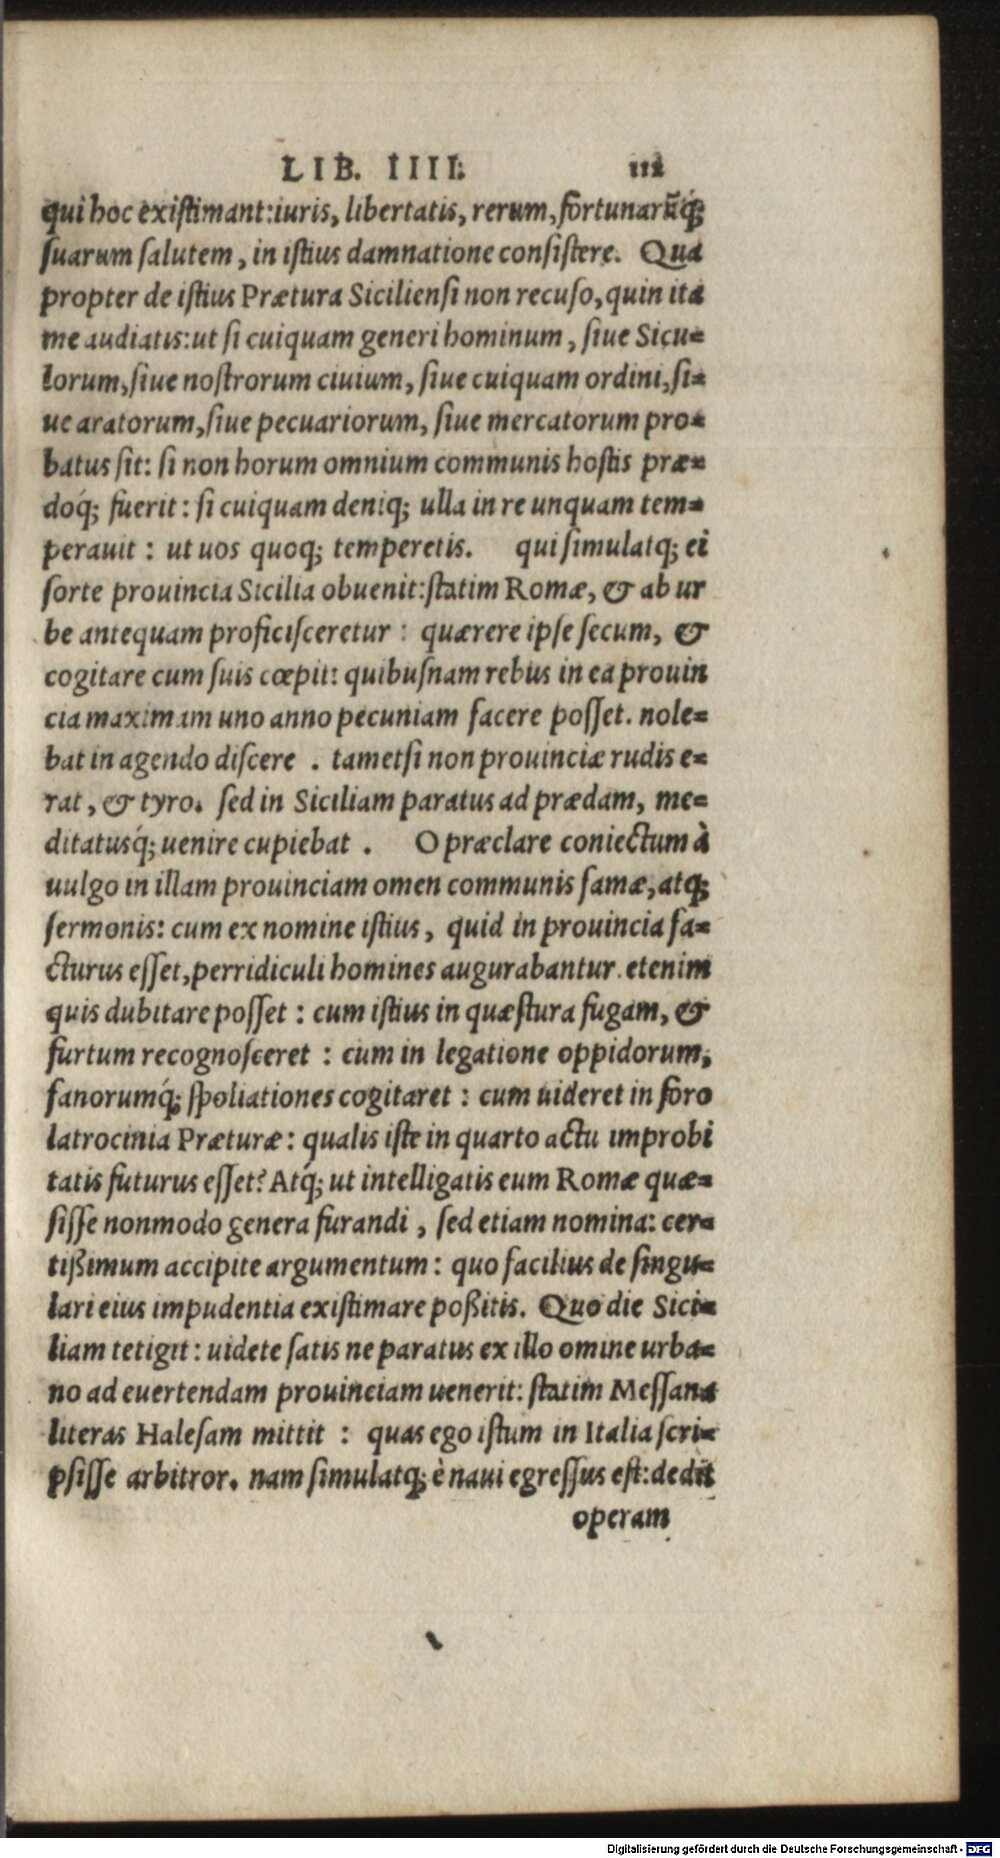 LIB. IIII. 112
qui hoc existimant: iuris, libertatis, rerum, fortunarūq́;
suarum salutem, in istius damnatione consistere. Qua
propter de istius Prætura Siciliensi non recuso, quin ita
me audiatis: ut si cuiquam generi hominum, siue Sicu-
lorum, siue nostrorum ciuium, siue cuiquam ordini, si-
ue aratorum, siue pecuariorum, siue mercatorum pro-
batus sit: si non horum omnium communis hostis præ-
doq́; fuerit: si cuiquam deniq; ulla in re unquam tem-
perauit: ut uos quoq; temperetis. qui simulatq; ei
sorte prouincia Sicilia obuenit: statim Romæ, & ab ur
be antequam proficisceretur: quærere ipse secum, &
cogitare cum suis cœpit: quibusnam rebus in ea prouin
cia maximam uno anno pecuniam facere posset. nole-
bat in agendo discere. tametsi non prouinciæ rudis e-
rat, & tyro. sed in Siciliam paratus ad prædam, me-
ditatusq́; uenire cupiebat. O præclare coniectum à
uulgo in illam prouinciam omen communis famæ, atq;
sermonis: cum ex nomine istius, quid in prouincia fa-
cturus esset, perridiculi homines augurabantur. etenim
quis dubitare posset: cum istius in quæstura fugam, &
furtum recognosceret: cum in legatione oppidorum,
fanorumq́; spoliationes cogitaret: cum uideret in foro
latrocinia Præturæ: qualis iste in quarto actu improbi
tatis futurus esset? Atq́; ut intelligatis eum Romæ quæ-
sisse nonmodo genera furandi, sed etiam nomina: cer-
tißimum accipite argumentum: quo facilius de singu-
lari eius impudentia existimare poßitis. Quo die Sici-
liam tetigit: uidete satis ne paratus ex illo omine urba-
no ad euertendam prouinciam uenerit: statim Messana
literas Halesam mittit: quas ego istum in Italia scri-
psisse arbitror. nam simulatq; è naui egressus est: dedit
operam
Digitalisierung gefördert durch die Deutsche Forschungsgemeinschaft - DFG